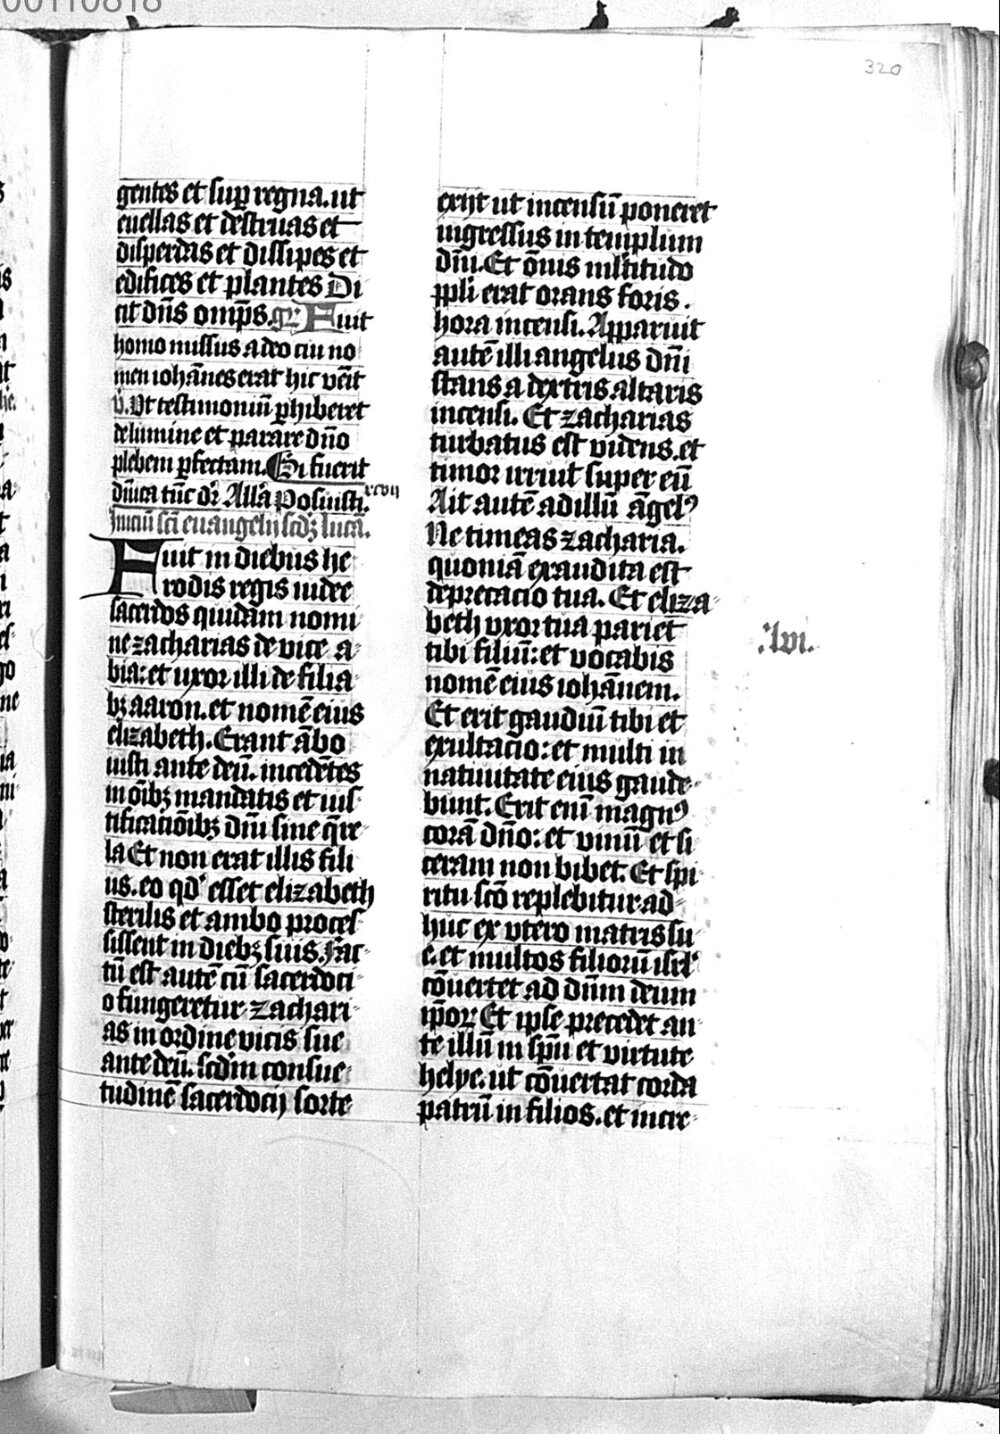 00110818
320
gentes et sup regna. ut
euellas et destruas et
disperdas et dissipes et
edifices et plantes Di
cit dn̄s omp̄s. gr̄ Fuit
homo missus a deo cui no
men ioh̄anes erat hic uēit
v̄. Vt testimoniū phiberet
de lumine et parare dn̄o
plebem pfectam. Si fuerit
dn̄ica tūc dr̄ Allā Posuisti. xcvij
Iniciū sc̄i euangelij scdꝫ lucā.
Fuit in diebus he
rodis regis iudee
sacerdos quidam nomi
ne zacharias de vice a-
bia: et uxor illi de filia
bꝫ aaron. et nomē eius
elizabeth. Erant ābo
iusti ante deū. incedētes
in ōibꝫ mandatis et ius-
tificatiōibꝫ dn̄i sine q̄re-
la Et non erat illis fili
us. eo qd' esset elizabeth
sterilis et ambo proces-
sissent in diebꝫ suis. Fac-
tū est autē cū sacerdoci-
o fungeretur zachari-
as in ordine vicis sue
ante deū. scd'm consue-
tudinē sacerdocij sorte
exijt ut incensū poneret
ingressus in templum
dn̄i. Et ōnis ml̄titudo
ppl̄i erat orans foris.
hora incensi. Apparuit
autē illi angelus dn̄i
stans a dextris altaris
incensi. Et zacharias
turbatus est videns. et
timor irruit super eū
Ait autē ad illū āgelꝰ
Ne timeas zacharia.
quoniā exaudita est
deprecacio tua. Et eliza-
beth vxor tua pariet
tibi filiū: et vocabis
nomē eius ioh̄anem.
Et erit gaudiū tibi et
exultacio: et multi in
natiuitate eius gaude-
bunt. Erit enī magnꝰ
corā dn̄o: et vinū et si
ceram non bibet. Et spi-
ritu sc̄o replebitur ad-
huc ex vtero matris su-
e. et multos filiorū isrl'
cōuertet ad dn̄m deum
ip̄oꝝ Et ipse precedet an-
te illū in sp̄u et virtute
helye. ut cōuertat corda
patrū in filios. et incre-
.lvi.